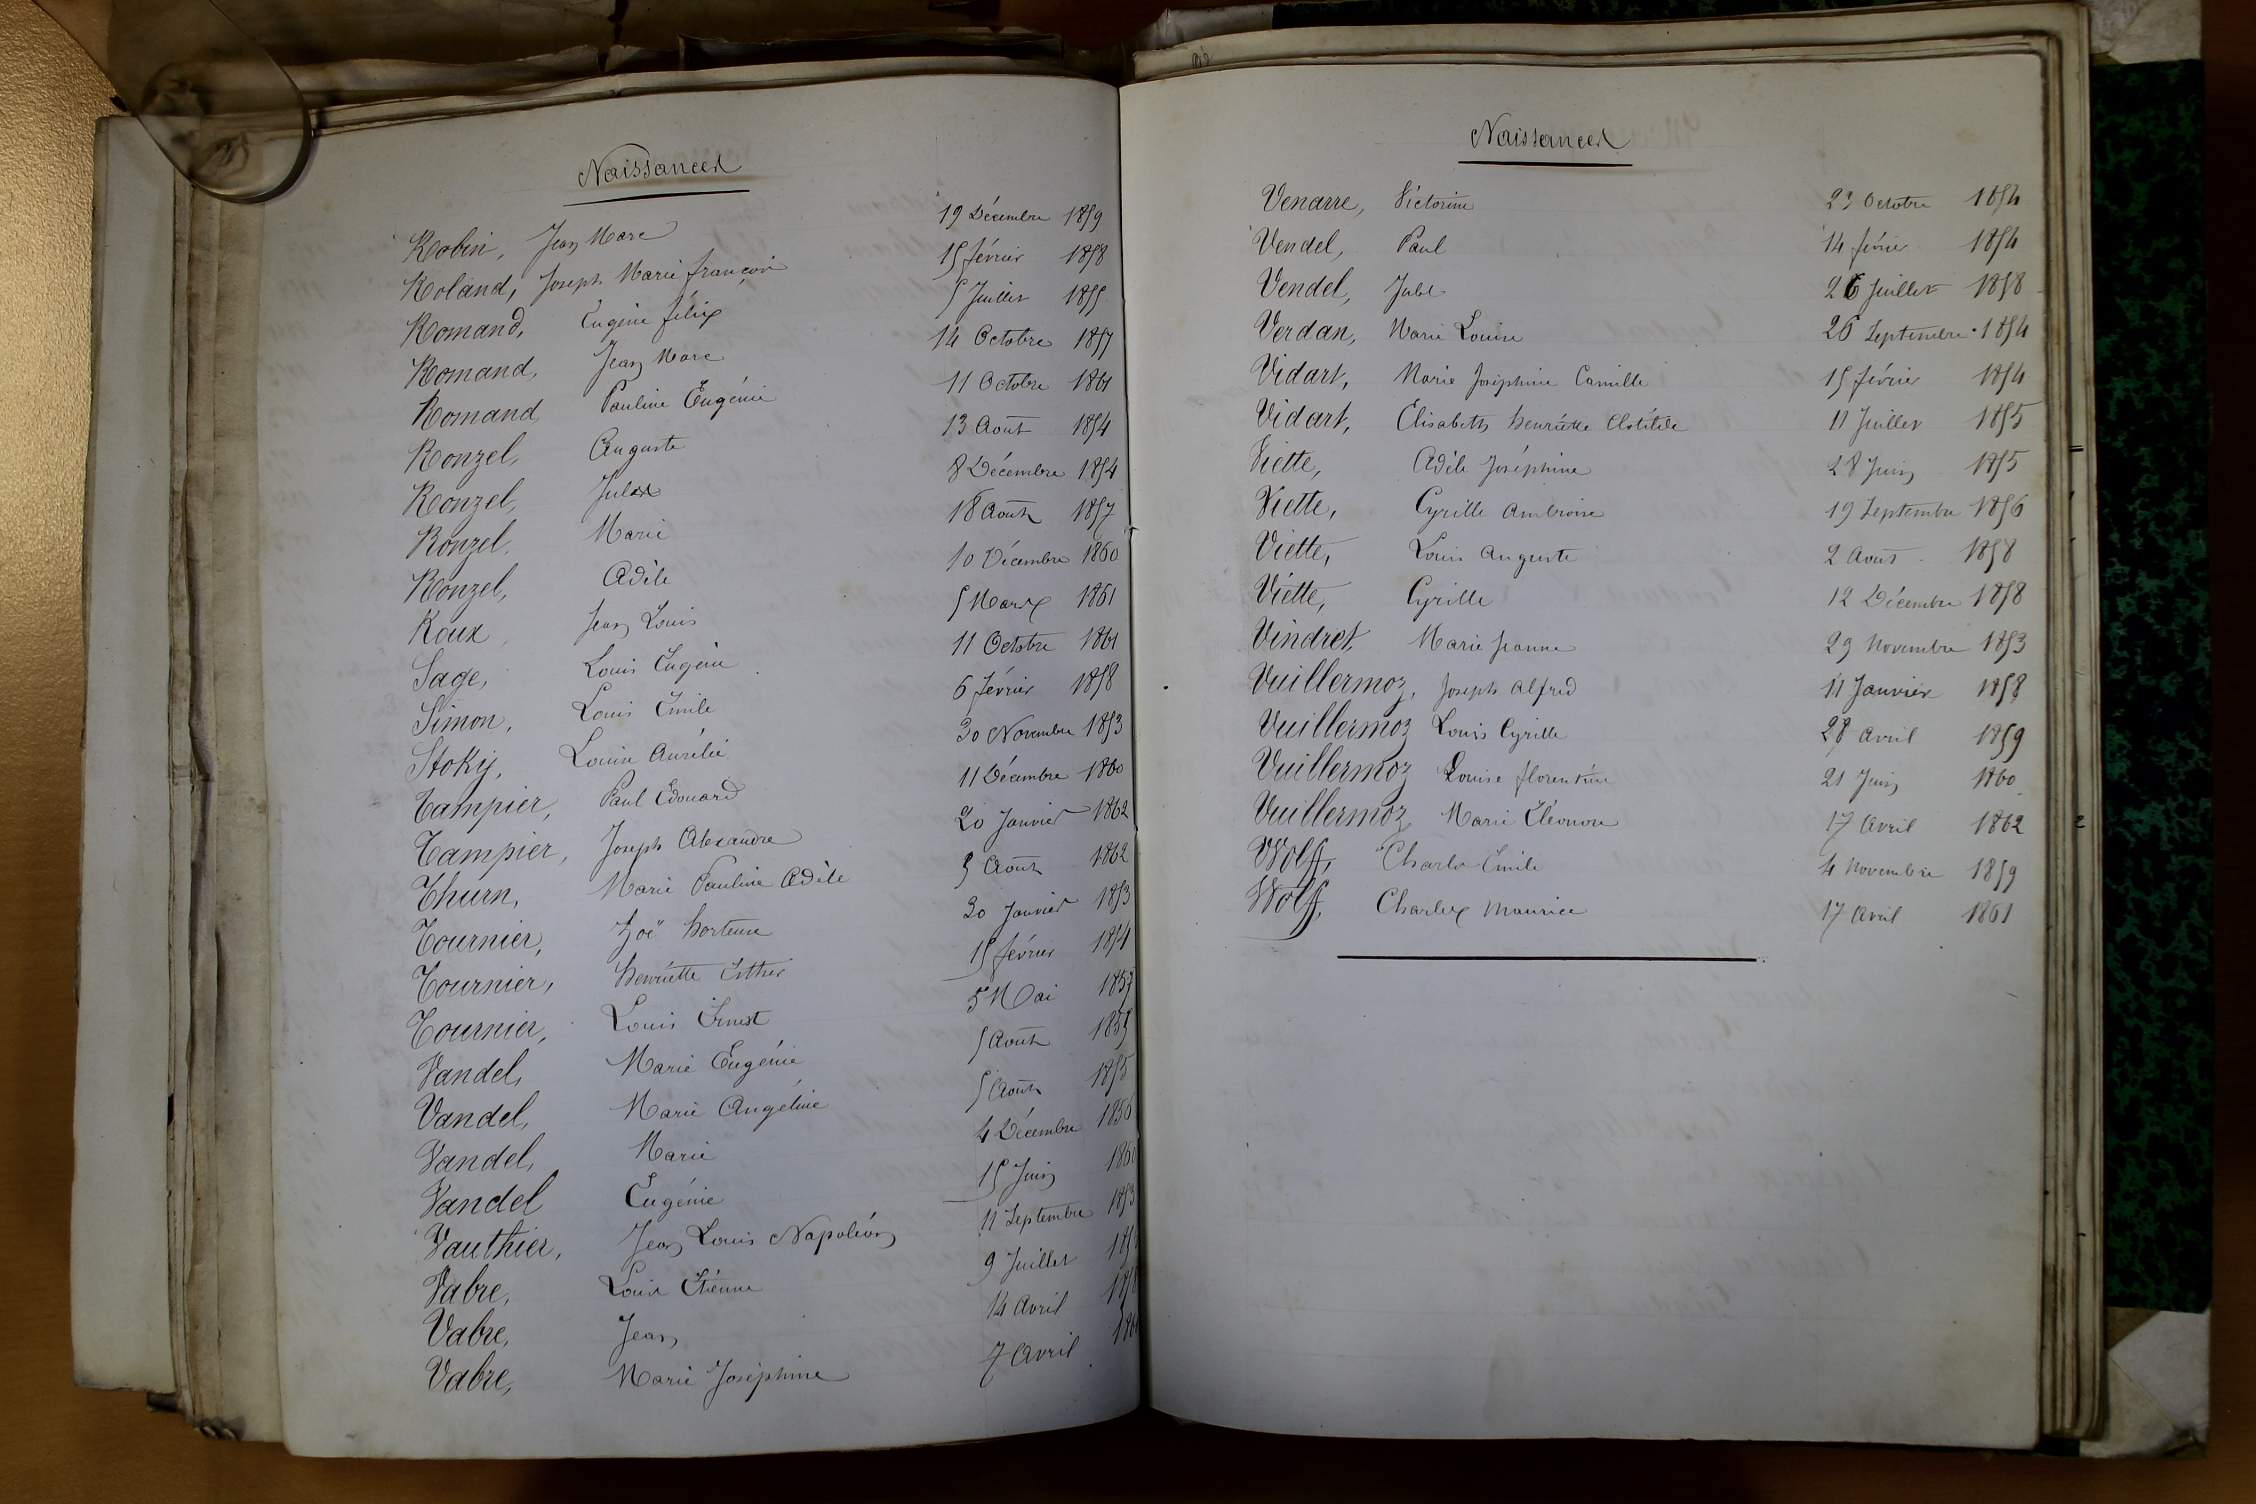 Naissances
Robin, Jean Marc 19 Décembre 1859
Roland, Joseph Marie françois 15 février 1858
Romand, Eugène félix 5 Juillet 1855
Romand, Jean Marc 14 Octobre 1857
Romand, Pauline Eugénie 11 Octobre 1861
Ronzel, Auguste 13 Aout 1854
Ronzel, Jules 8 Décembre 1854
Ronzel, Marie 18 Aout 1857
Ronzel, Adèle 10 Décembre 1860
Roux, Jean Louis 5 Mars 1861
Sage, Louis Eugène 11 Octobre 1861
Simon, Louis Emile 6 février 1858
Stoky, Louise Aurélie 30 Novembre 1853
Tampier, Paul Edouard 11 Décembre 1860
Tampier, Joseph Alexandre 20 Janvier 1862
Thurn, Marie Pauline Adèle 5 Aout 1862
Tournier, Zoë hortense 30 Janvier 1853
Tournier, henriette Esther 15 février 1854
Tournier, Louis Ernest 5 Mai 1857
Vandel, Marie Eugénie 5 Aout 1859
Vandel, Marie Angéline 5 Aout 1855
Vandel, Marie 4 Décembre 1856
Vandel Eugénie 15 Juin 1860
Vauthier, Jean Louis Napoléon 11 Septembre 1853
Vabre, Louis Etienne 9 Juillet
Vabre, Jean 14 Avril 1858
Vabre, Marie Joséphine 7 Avril
Naissances
Venarre, Victorine 23 Octobre 1854
Vendel, Paul 14 février 1854
Vendel, Jules 26 Juillet 1858
Verdan, Marie Louise 26 Septembre 1854
Vidart, Marie Joséphine Camille 15 février 1854
Vidart, Elisabeth henriette Clotilde 11 Juillet 1855
Viette, Adèle Joséphine 28 Juin 1855
Viette, Cyrille Ambroise 19 Septembre 1856
Viette, Louis Auguste 2 Aout 1858
Viette, Cyrille 12 Décembre 1858
Vindret, Marie Jeanne 29 Novembre 1853
Vuillermoz, Joseph Alfred 11 Janvier 1858
Vuillermoz Louis Cyrille 28 Avril 1859
Vuillermoz Louise florentine 21 Juin 1860
Vuillermoz Marie Eléonore 17 Avril 1862
Wolff, Charles Emile 4 Novembre 1859
Wolff, Charles Maurice 17 Avril 1861